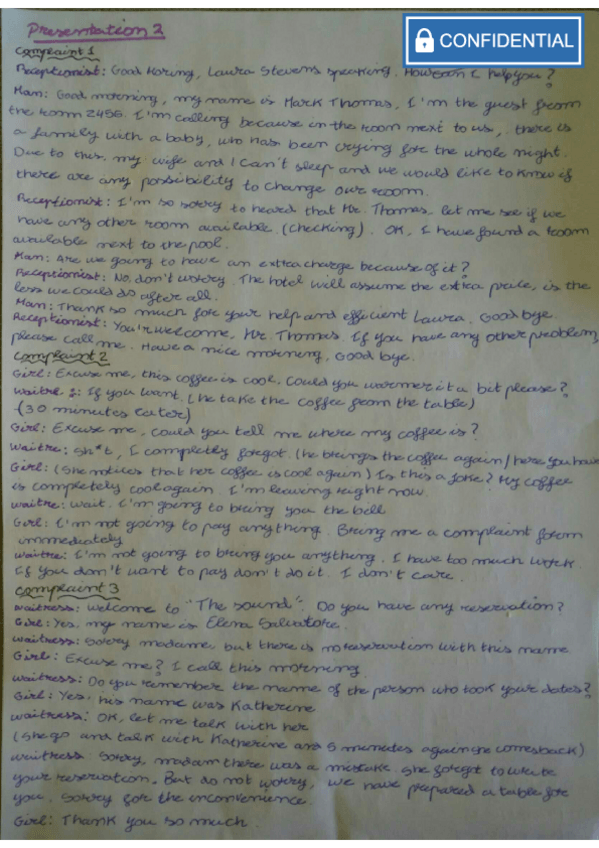 Presentation 2
CONFIDENTIAL
Complaint 1
Receptionist: Good Moring, Laura Stevens speaking. How can I help you?
Man: Good morning, my name is Mark Thomas, I'm the guest from
the room 2456. I'm calling because in the room next to us, there is
a family with a baby, who has been crying for the whole night.
Due to this, my wife and I can't sleep and we would like to know if
there are any possibility to change our room.
Receptionist: I'm so sorry to heard that Mr. Thomas, let me see if we
have any other room available. (checking). OK, I have found a room
available next to the pool.
Man: Are we going to have an extra charge because of it?
Receptionist: No, don't worry. The hotel will assume the extra price, is the
less we could do after all.
Man: Thank so much for your help and efficient Laura. Good bye.
Receptionist: You're welcome, Mr. Thomas. If you have any other problem,
please call me. Have a nice morning, Good bye.
Complaint 2
Girl: Excuse me, this coffee is cool. Could you warmer it a bit please?
If you want. (he take the coffee from the table)
(30 minutes later)
Girl: Excuse me, could you tell me where my coffee is?
Waitre: Sh*t, I completly forgot. (he brings the coffee again) here you have
Girl: (She notices that her coffee is cool again) Is this a joke? My coffee
is completely cool again. I'm leaving right now.
Waitre: Wait. I'm going to bring you the bill
Girl: I'm not going to pay anything. Bring me a complaint form
immediately
Waitre: I'm not going to bring you anything. I have too much work
If you don't want to pay don't do it. I don't care.
Complaint 3
Waitress: Welcome to "The sound". Do you have any reservation?
Girl: Yes, my name is Elena Salvatore.
Waitress: Sorry madame, but there is no reservation with this name
Girl: Excuse me? I call this morning.
Waitress: Do you remember the name of the person who took your dates?
Girl: Yes, his name was Katherine
Waitress: OK, let me talk with her
(She go and talk with Katherine and 5 minutes again she comes back)
Waitress: Sorry, madam there was a mistake. She forgot to write
your reservation. But do not worry, we have prepared a table for
you. Sorry for the inconvenience.
Girl: Thank you so much.